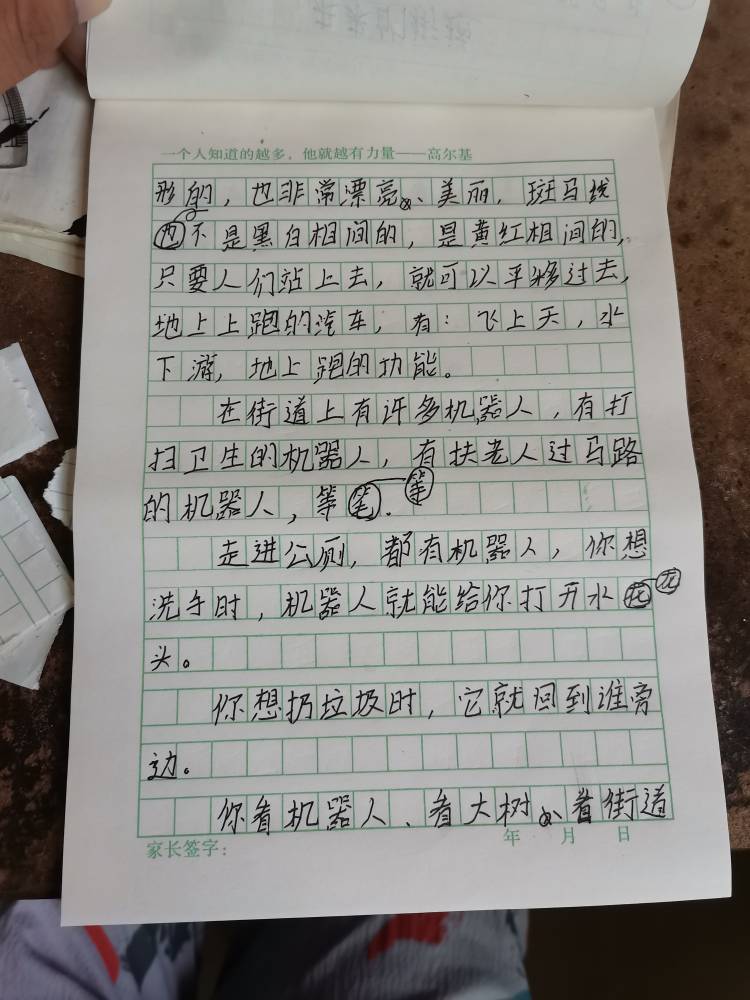 一个人知道的越多，他就越有力量——高尔基
形的，也非常漂亮、美丽，斑马线
不是黑白相间的，是黄红相间的，
只要人们站上去，就可以平移过去，
地上上跑的汽车，有：飞上天，水
下游，地上跑的功能。
在街道上有许多机器人，有打
扫卫生的机器人，有扶老人过马路
的机器人，等等.
走进公厕，都有机器人，你想
洗手时，机器人就能给你打开水龙
头。
你想扔垃圾时，它就回到谁旁
边。
你看机器人、看大树、看街道
家长签字： 年 月 日